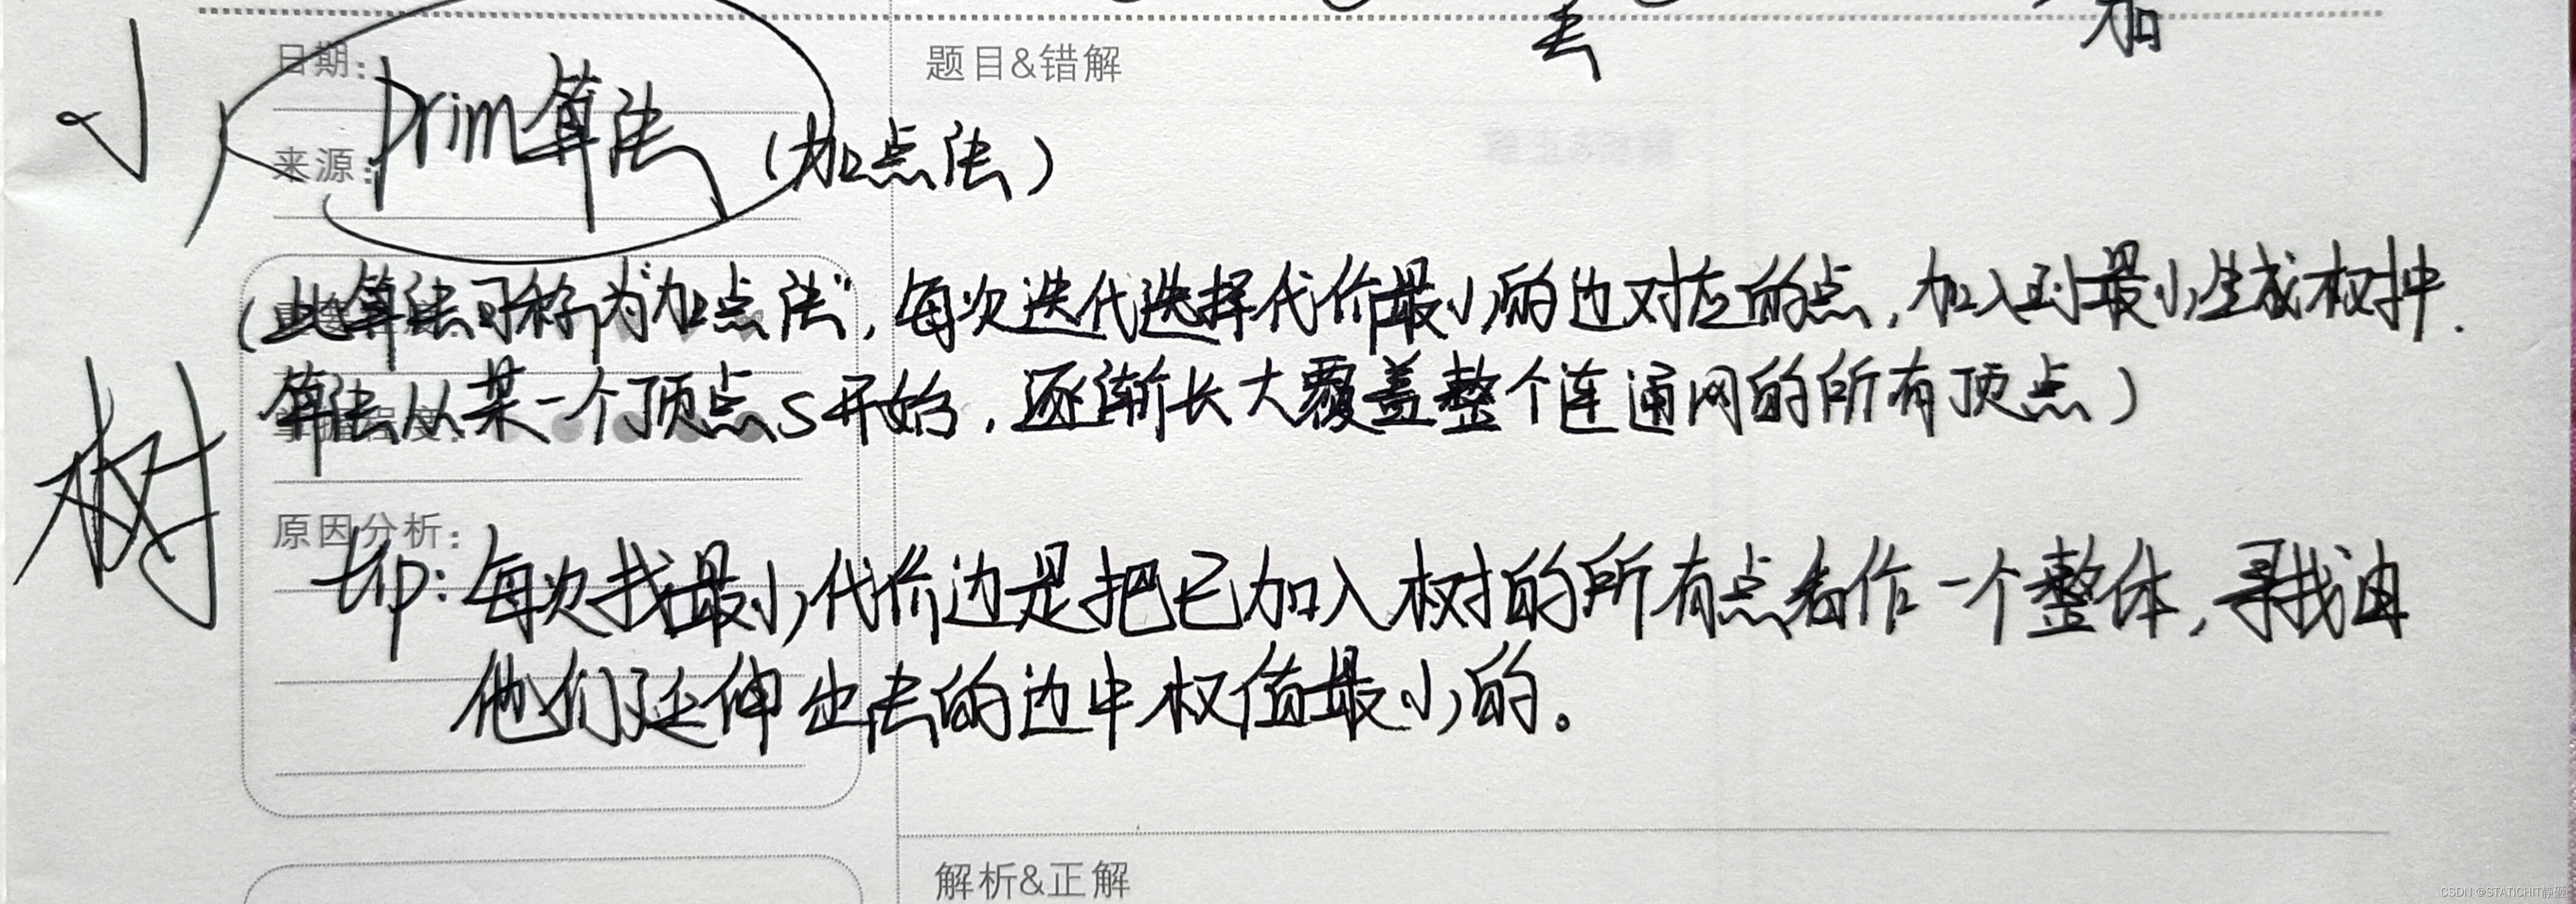 去 加
小
日期：
题目&错解
Prim算法（加点法）
来源：
（此算法可称为"加点法"，每次迭代选择代价最小的边对应的点，加入到最小生成树中.
算法从某一个顶点S开始，逐渐长大覆盖整个连通网的所有顶点）
树
原因分析：
tip：每次找最小代价边是把已加入树的所有点看作一个整体，寻找由
他们延伸出去的边中权值最小的。
解析&正解
CSDN @STATICHIT静砸